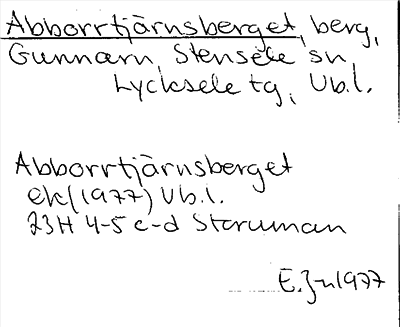 Abborrtjärnsberget, berg,
Gunnarn, Stensele sn,
Lycksele tg, Vb.l.
Abborrtjärnsberget
ek (1977) Vb.l.
23H 4-5 c-d Storuman
E. Jn 1977